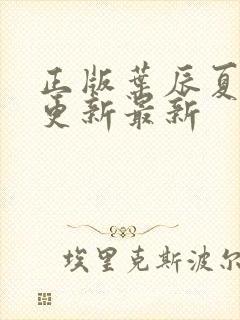 正版叶辰夏
更新最新
埃里克斯波尔